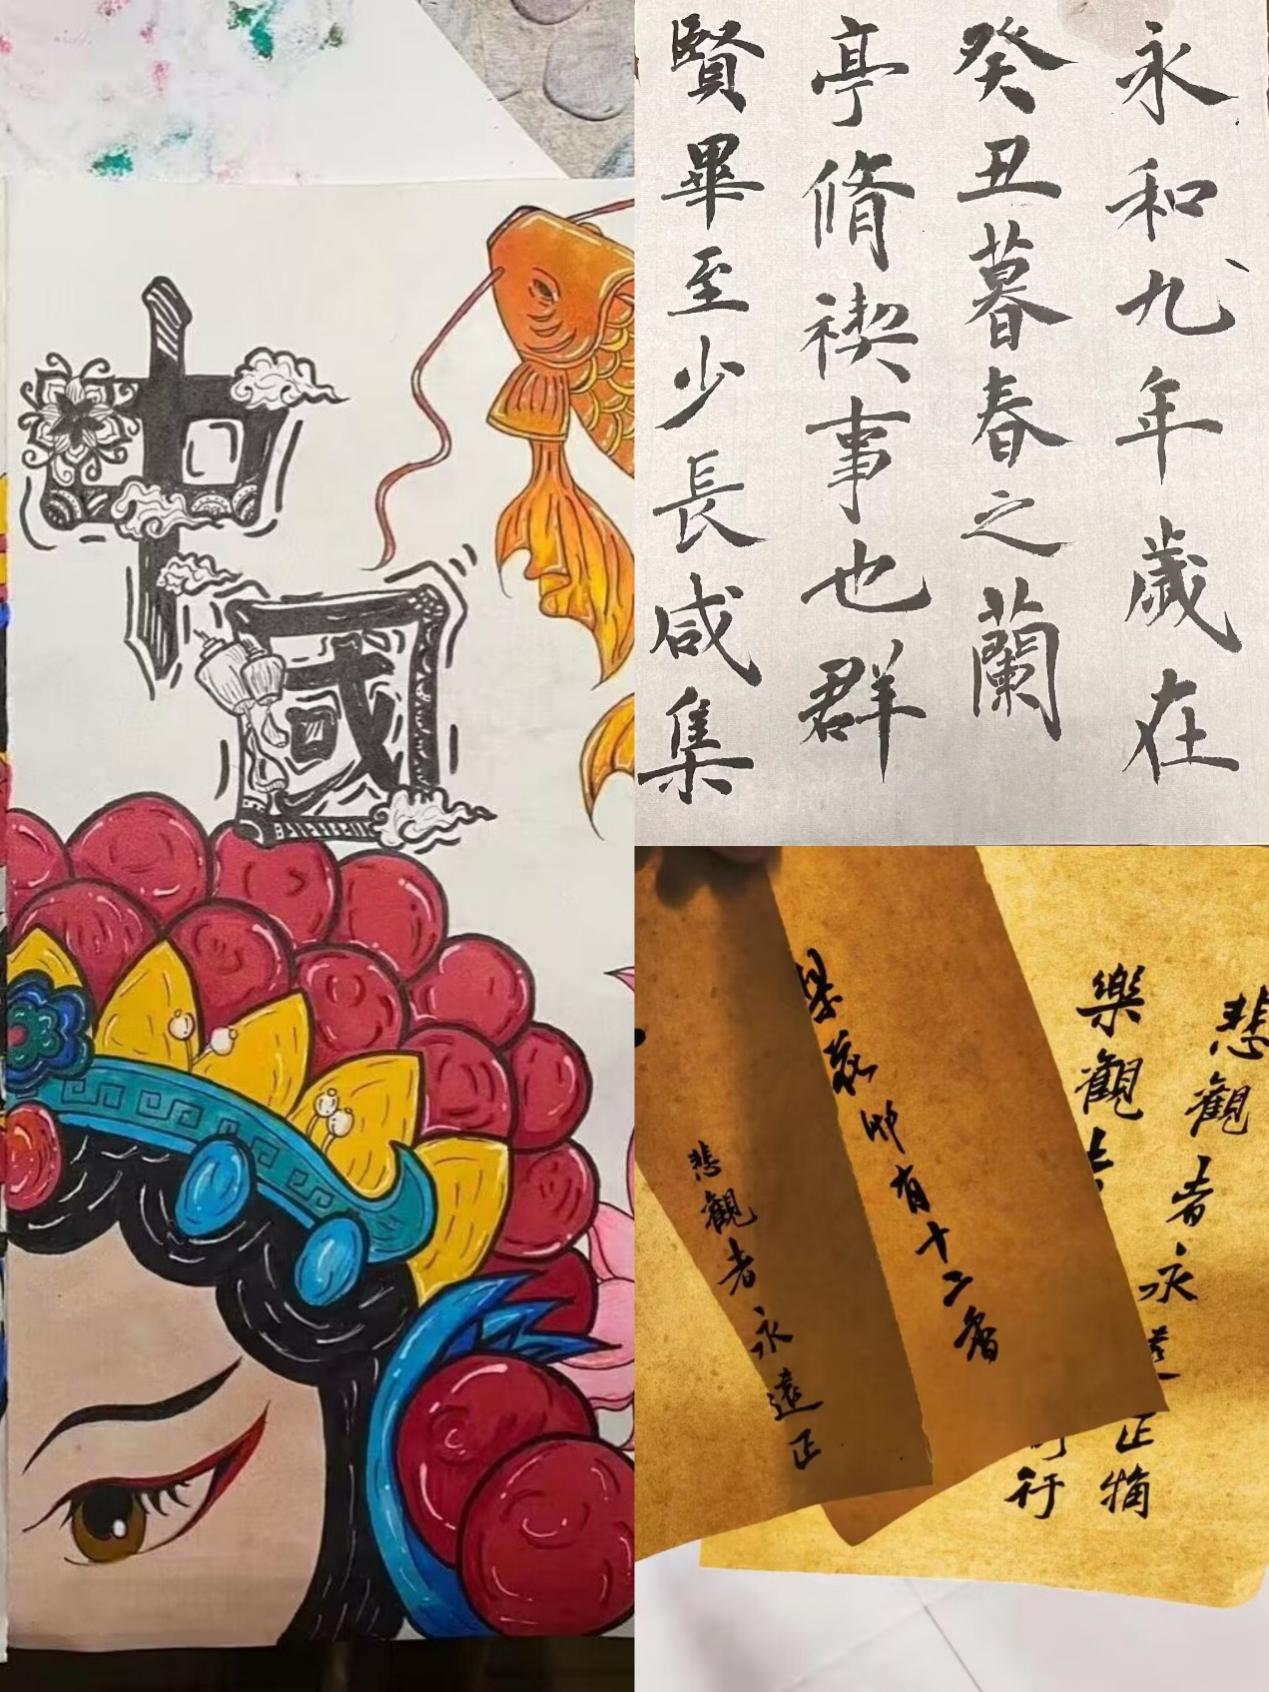 中
國
永和九年歲在
癸丑暮春之蘭
亭脩禊事也群
賢畢至少長咸集
悲觀者永遠正确
樂觀行
有十二
悲觀者永遠正